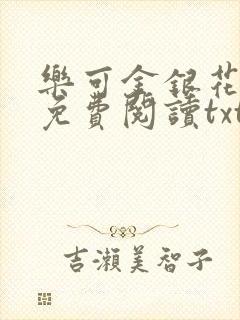 樂可金銀花
免費閱讀txt
吉瀨美智子